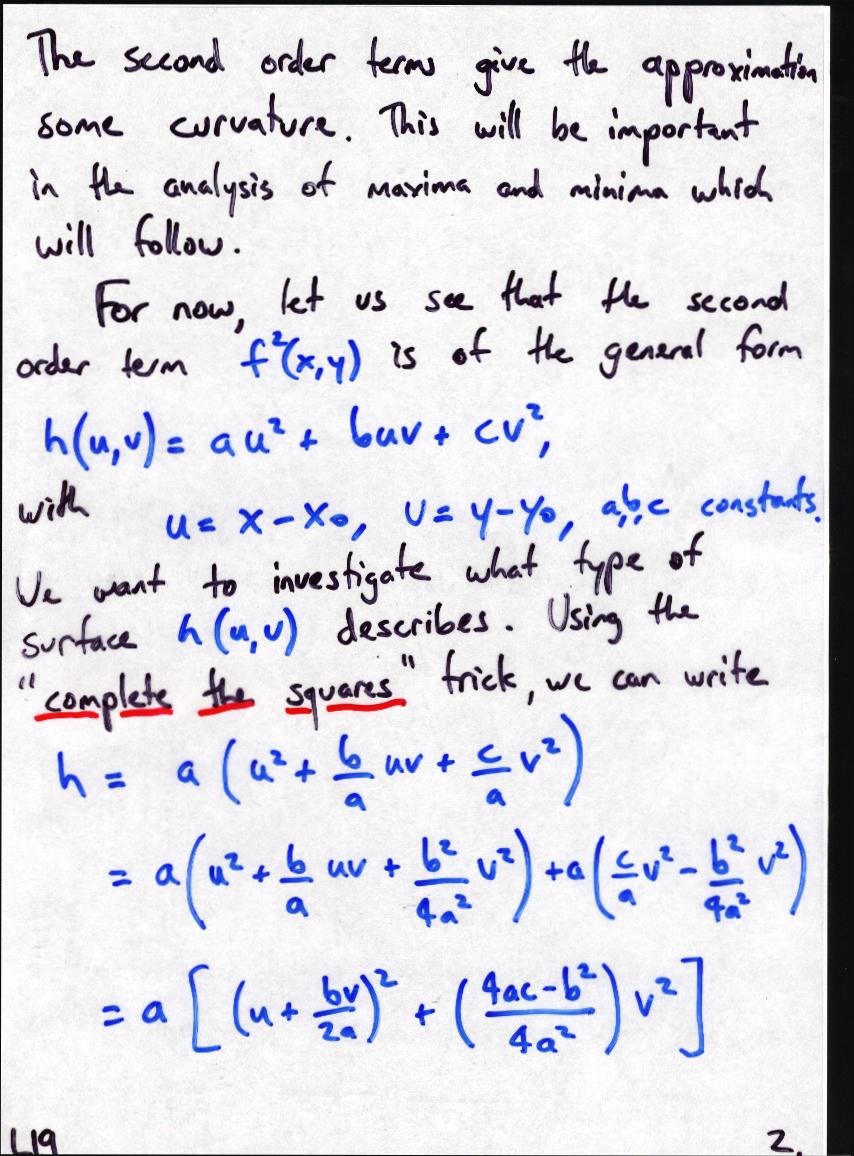 The second order terms give the approximation
some curvature. This will be important
in the analysis of maxima and minima which
will follow.
For now, let us see that the second
order term f²(x,y) is of the general form
h(u,v) = au² + buv + cv²,
with u = x-x₀, v = y-y₀, a,b,c constants.
We want to investigate what type of
surface h(u,v) describes. Using the
"complete the squares" trick, we can write
h = a(u² + b/a uv + c/a v²)
= a(u² + b/a uv + b²/4a² v²) + a(c/a v² - b²/4a² v²)
= a[(u + bv/2a)² + ((4ac-b²)/4a²) v²]
L19 2.